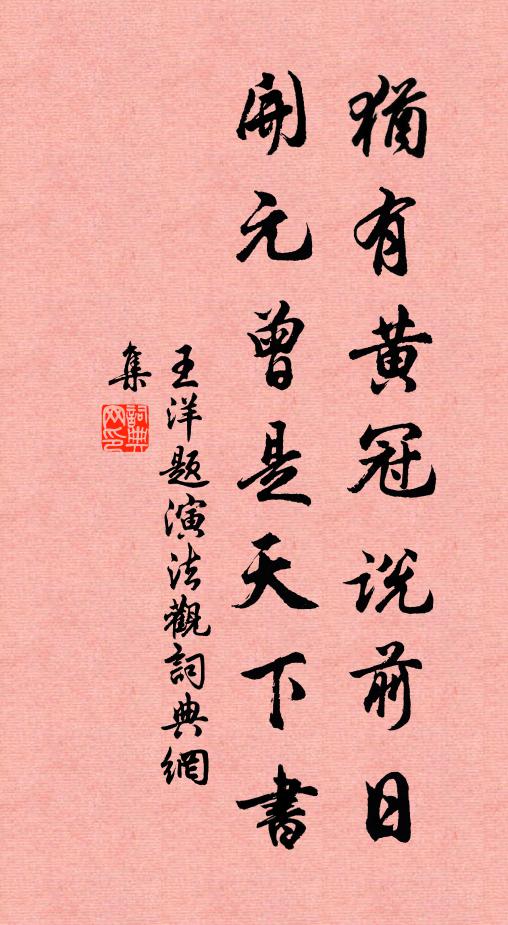 猶有黃冠說前日
開元曾是天下書
王洋題演法觀詞典網
集
詞典
网印